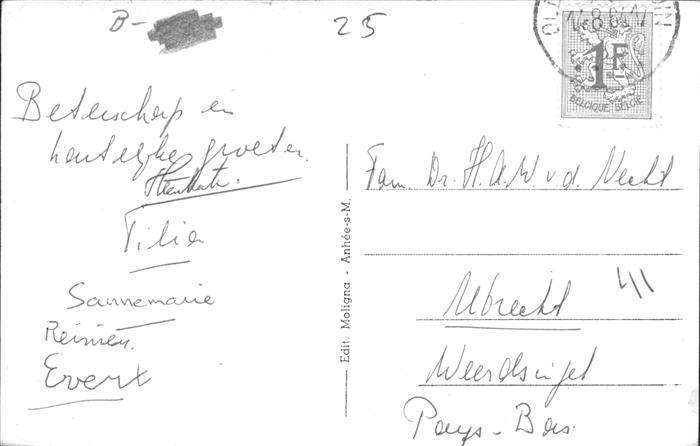 B- 25
14.8.64.17
1F
BELGIQUE-BELGIË
Beterschap en
hartelijke groeten.
Tilia
Sannemarie
Reinier.
Evert
Edit. Moligna - Anhée-s-M.
Fam. Dr. H.A.W. v.d. Vecht
Utrecht
Weerdsingel
Pays-Bas.